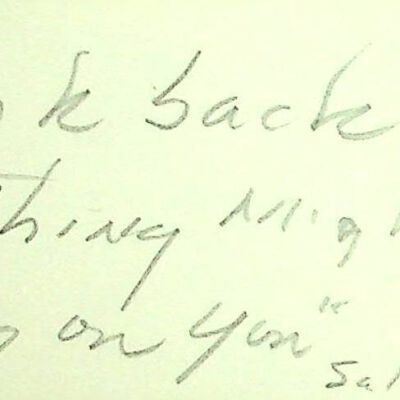 k back
thing Mig
on you"
Sat